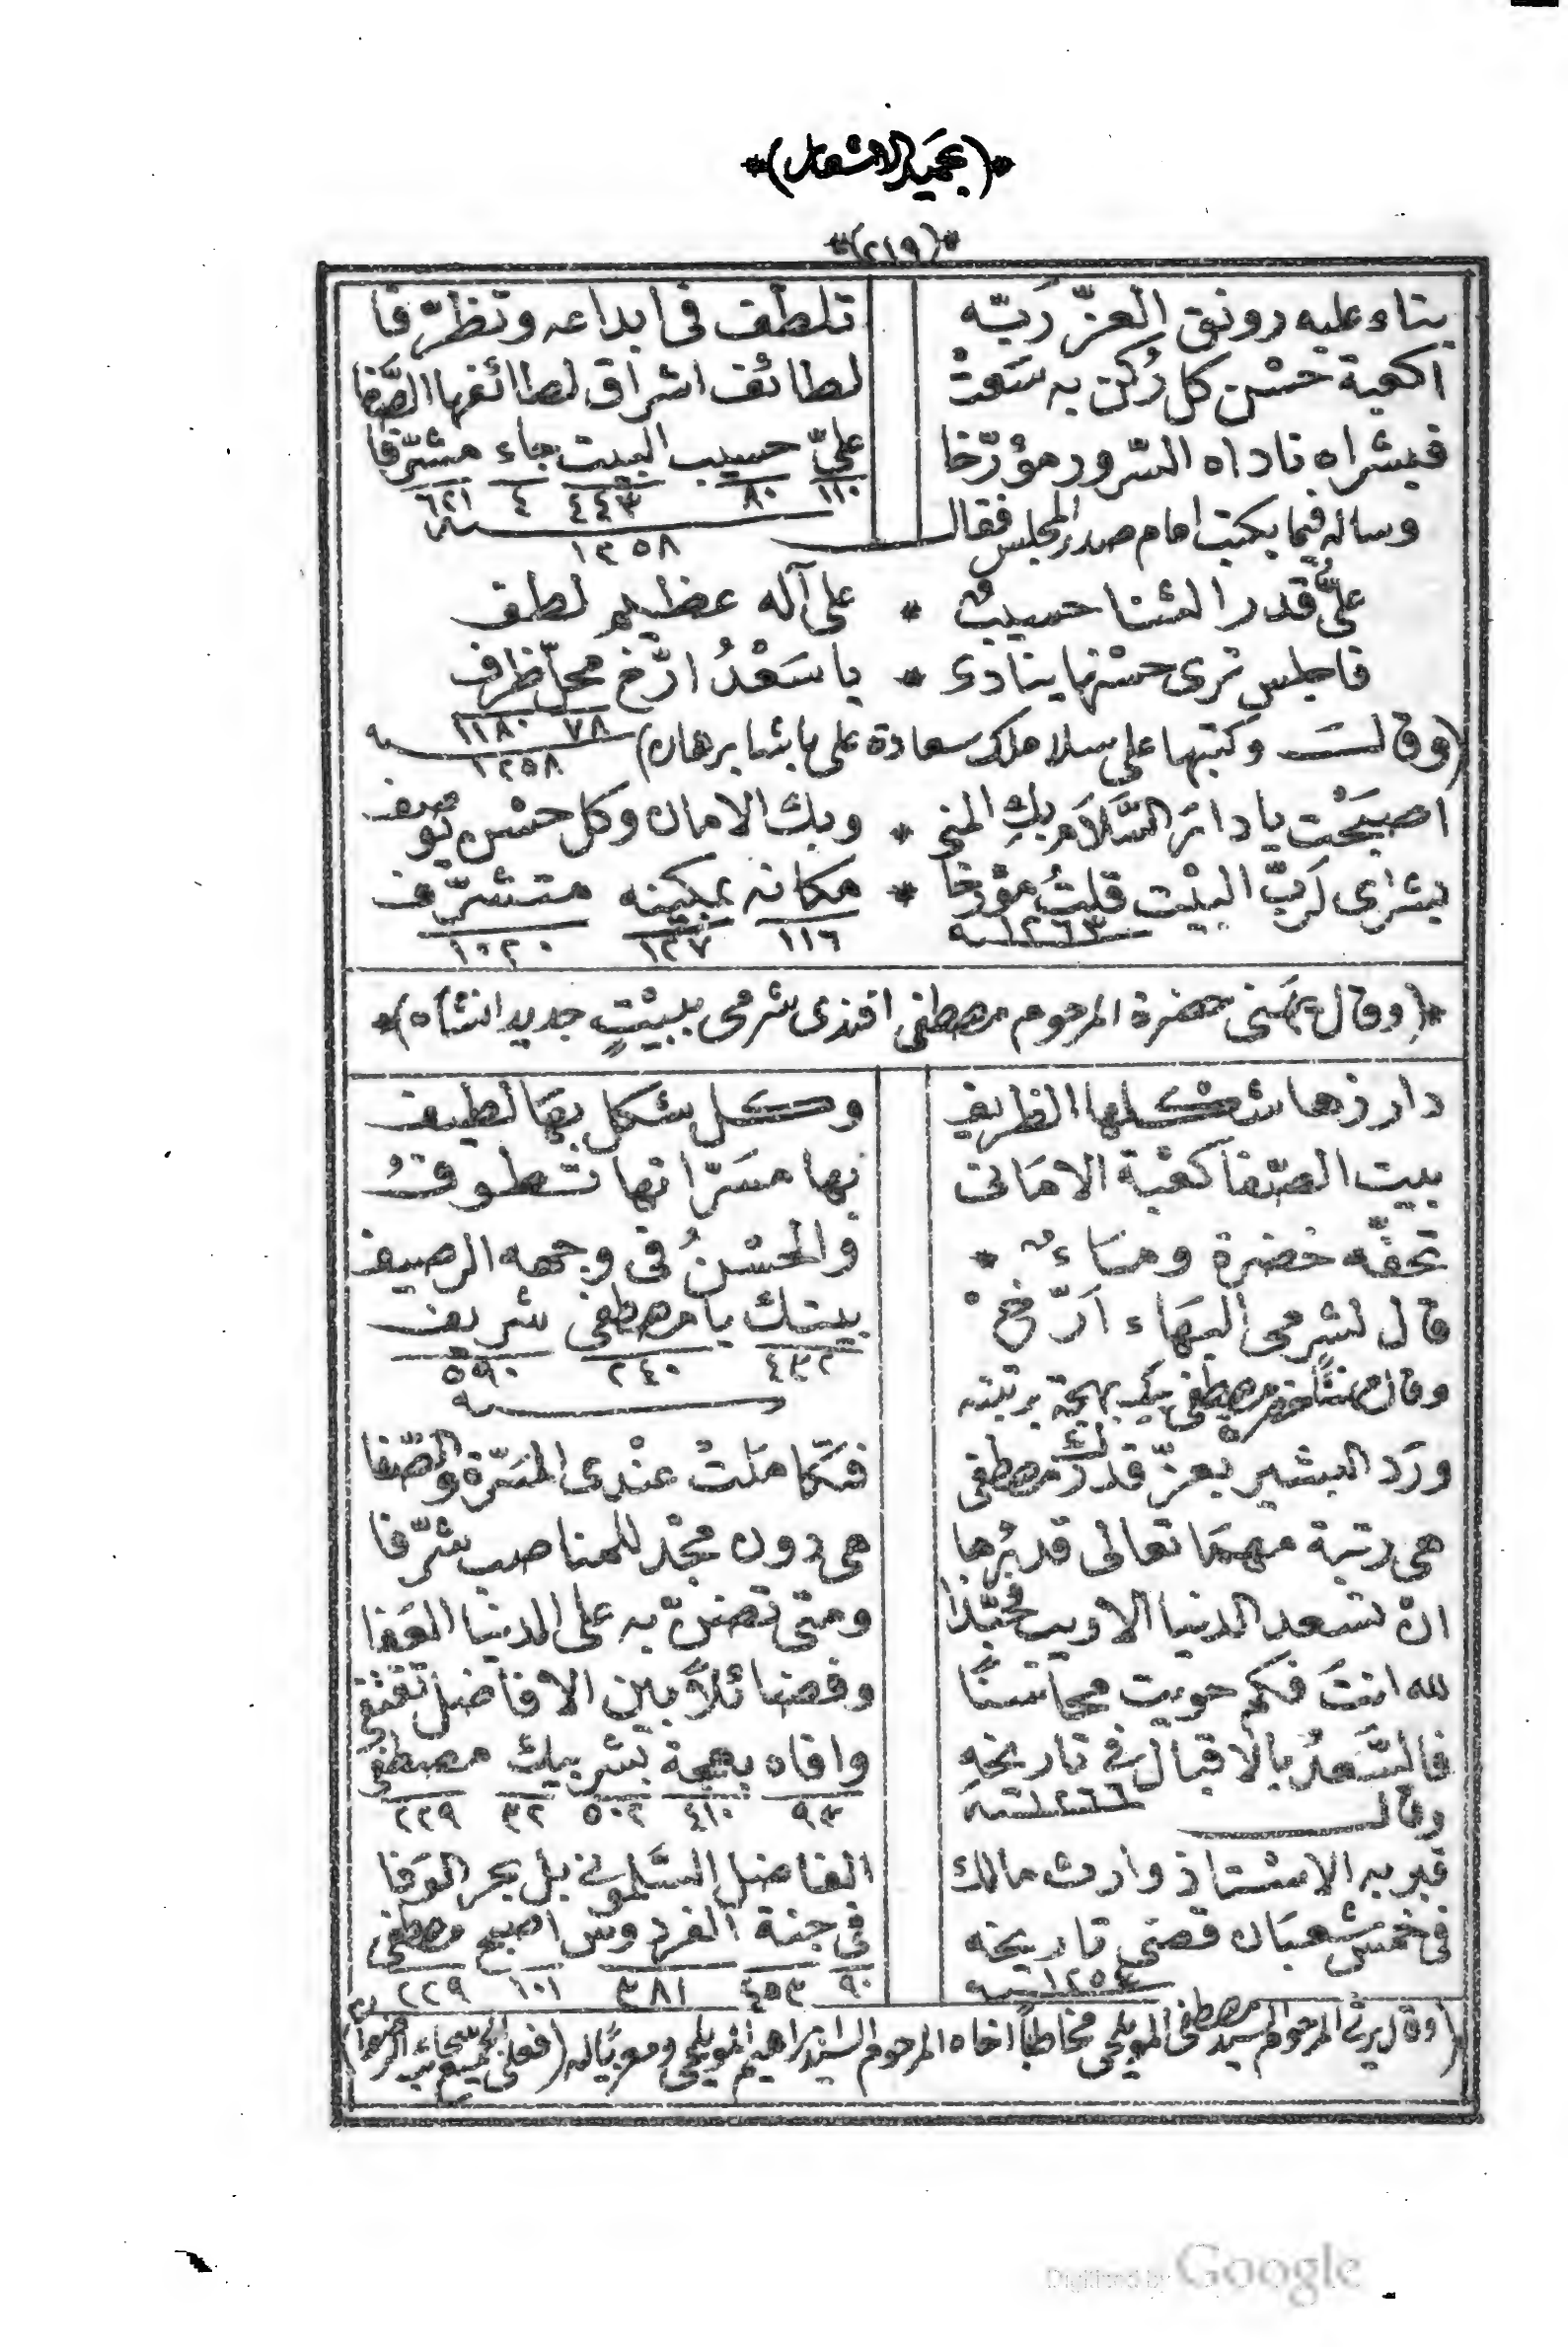 *(219)*
بناء عليه رونق العز ربّه تلطّف فى ابداعه وتظرّفا
اكعبة حُسْن كل رُكن به سَعَتْ لطائف اشراق لطائفها الصَّفا
فبشراه ناداه السّرور مؤرّخا علىّ حسيب البيت جاء مشرّفا
١١٠ ٨٠ ٤٤٣ ٤ ٦٢١
وساله فيما يكتب امام صدر المجلس فقال
١٢٥٨
علىُّ قدر الثنا حسيبٌ * على آله عظيم لطف
فاجلس ترى حسْنها ينادى * يا سَعْدُ ارّخ محلّ ظرف
٧٨ ١١٨٠
(وقالت وكتبها على سلاملك سعادة على باشا برهان)
١٢٥٨
اصبَحْت يا دارَ السَّلاَم بكِ المنى * وبك الامان وكل حسْن يوصف
بشراى رَبّ البيْت قلتُ مؤرخا * مكانه بمكينه متشرّف
سنة ١٢٦٣ ١١٦ ١٢٧ ١٠٢٠
*(وقال يهنى حضرة المرحوم مصطفى افندى شرمى ببيْتٍ جديد انشاه)*
دار زها شكلها الظريف وكل شكل بهَا لطيف
بيت الصّفا كعْبة الامَانى بها مسَرّاتها تطوفُ
تحفّه خضرة وماءٌ * والحسْنُ فى وجهه الرصيف
قال لشرمى البهَاء اَرّخْ بيتك يا مصطفى شريف
٤٣٢ ٢٤٠ ٥٩٠
وقال مهنئا مصطفى بيك بهجة برتبته
ورَد البشير بعزّ قدْرك مصطفى فتكامَلتْ عنْدى المسَرّة والصّفا
هى رتبة مهمَا تعالى قدرُها هى دون مجْد للمناصب شرّفا
انْ تسْعد الدنيا الاديب فحبّذا ومتى تضنّ به على الدنيا العَفا
لله انتَ فكم حويت محاسنًا وفضائلاً بين الافاضل تقتفى
فالسَّعدُ بالاقبال فى تاريخه وافاه بهجة بَشّر بيك مصطفى
سنة ١٢٦٦ ٩٣ ٤١٠ ٥٠٢ ٣٢ ٢٢٩
وقال
قبر به الاسْتاذ وارث مالك الفاضل السَّلمونى بل بحر الوَفا
فى خمس شعبَان قضى تاريخه فى جنة الفردوس اصبح مصطفى
سنة ١٢٥٤ ٩٠ ٤٥٣ ٣٨١ ١٠١ ٢٢٩
(وقال يرثى المرحوم السيد مصطفى المويلحى مخاطباً اخاه المرحوم السيد ابراهيم المويلحى ومعزيًا له
Digitized by Google